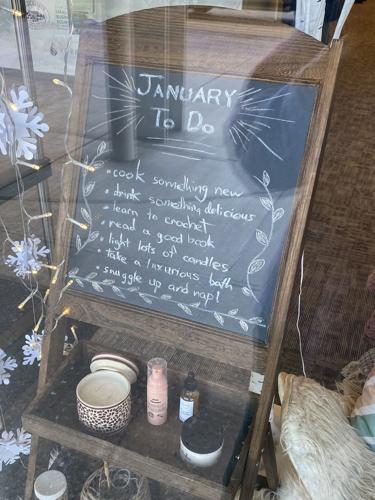 JANUARY
To Do
• cook something new
• drink something delicious
• learn to crochet
• read a good book
• light lots of candles
• take a luxurious bath
• snuggle up and nap!